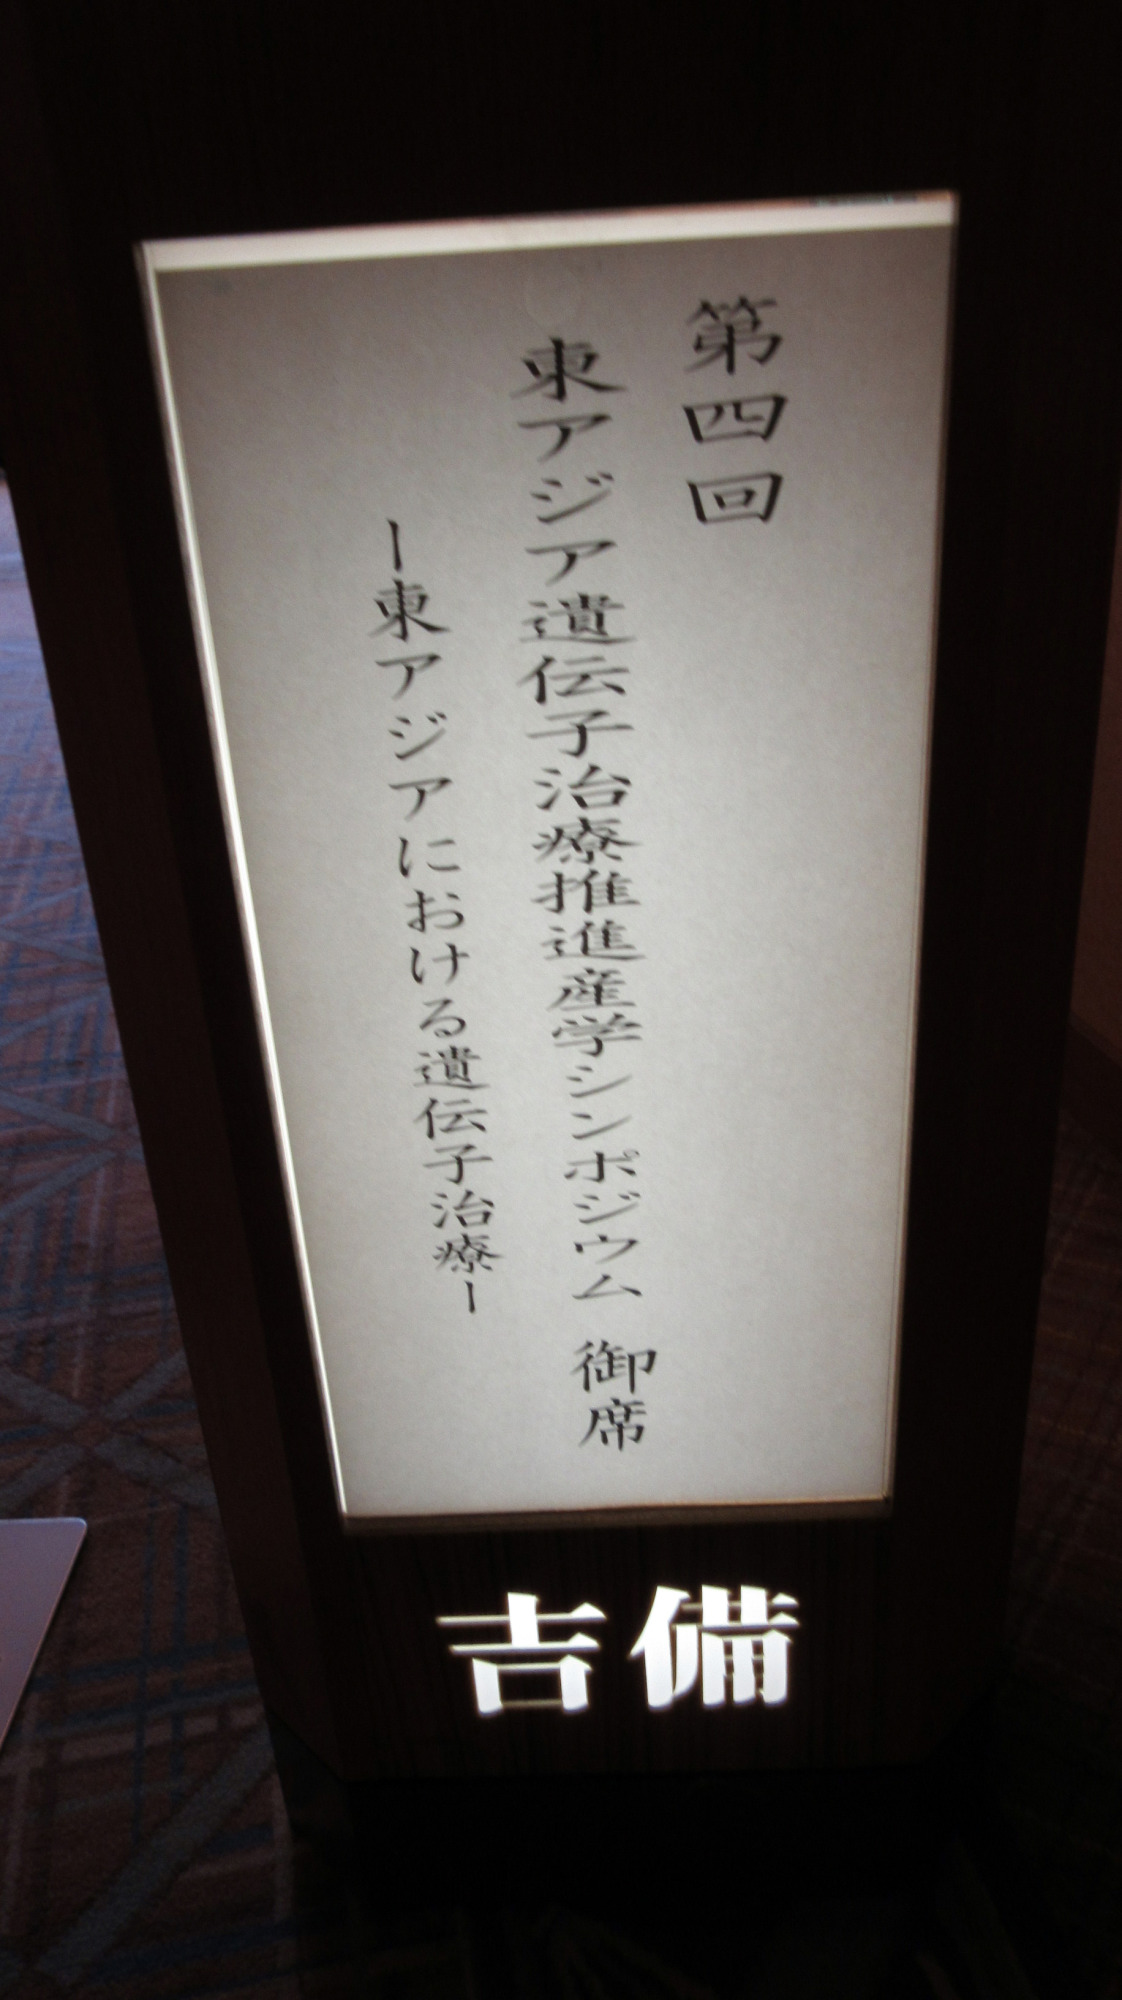 第四回
東アジア遺伝子治療推進産学シンポジウム 御席
ー東アジアにおける遺伝子治療ー
吉備